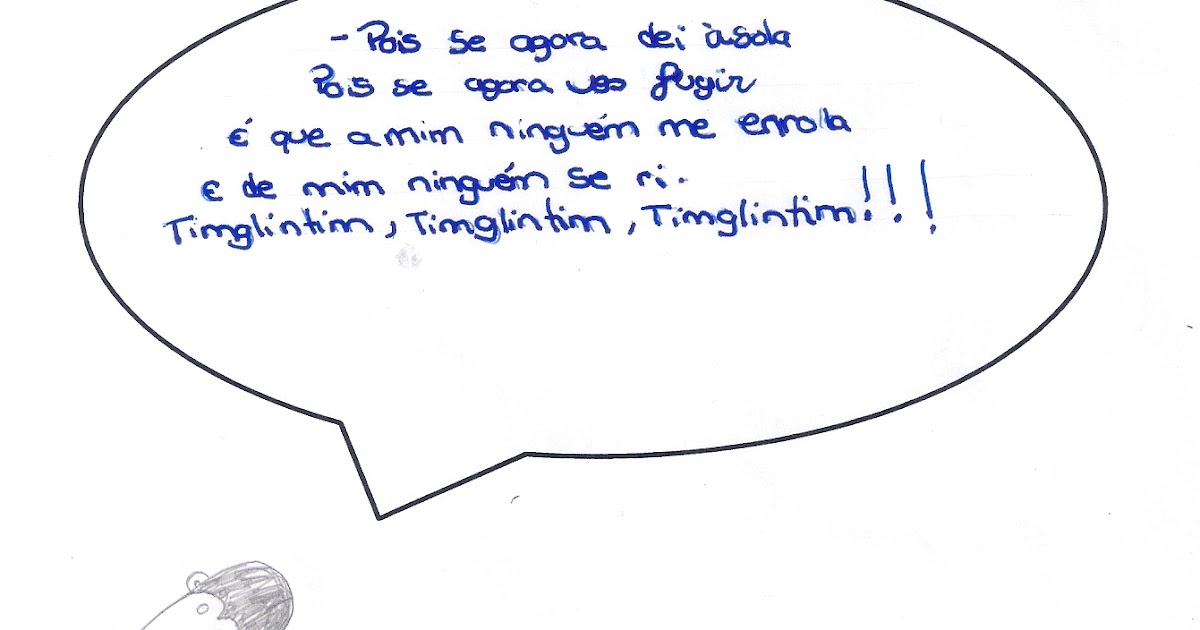 - Pois se agora dei à sola
Pois se agora vou fugir
É que a mim ninguém me enrola
E de mim ninguém se ri.
Timglintim, Timglintim, Timglintim!!!